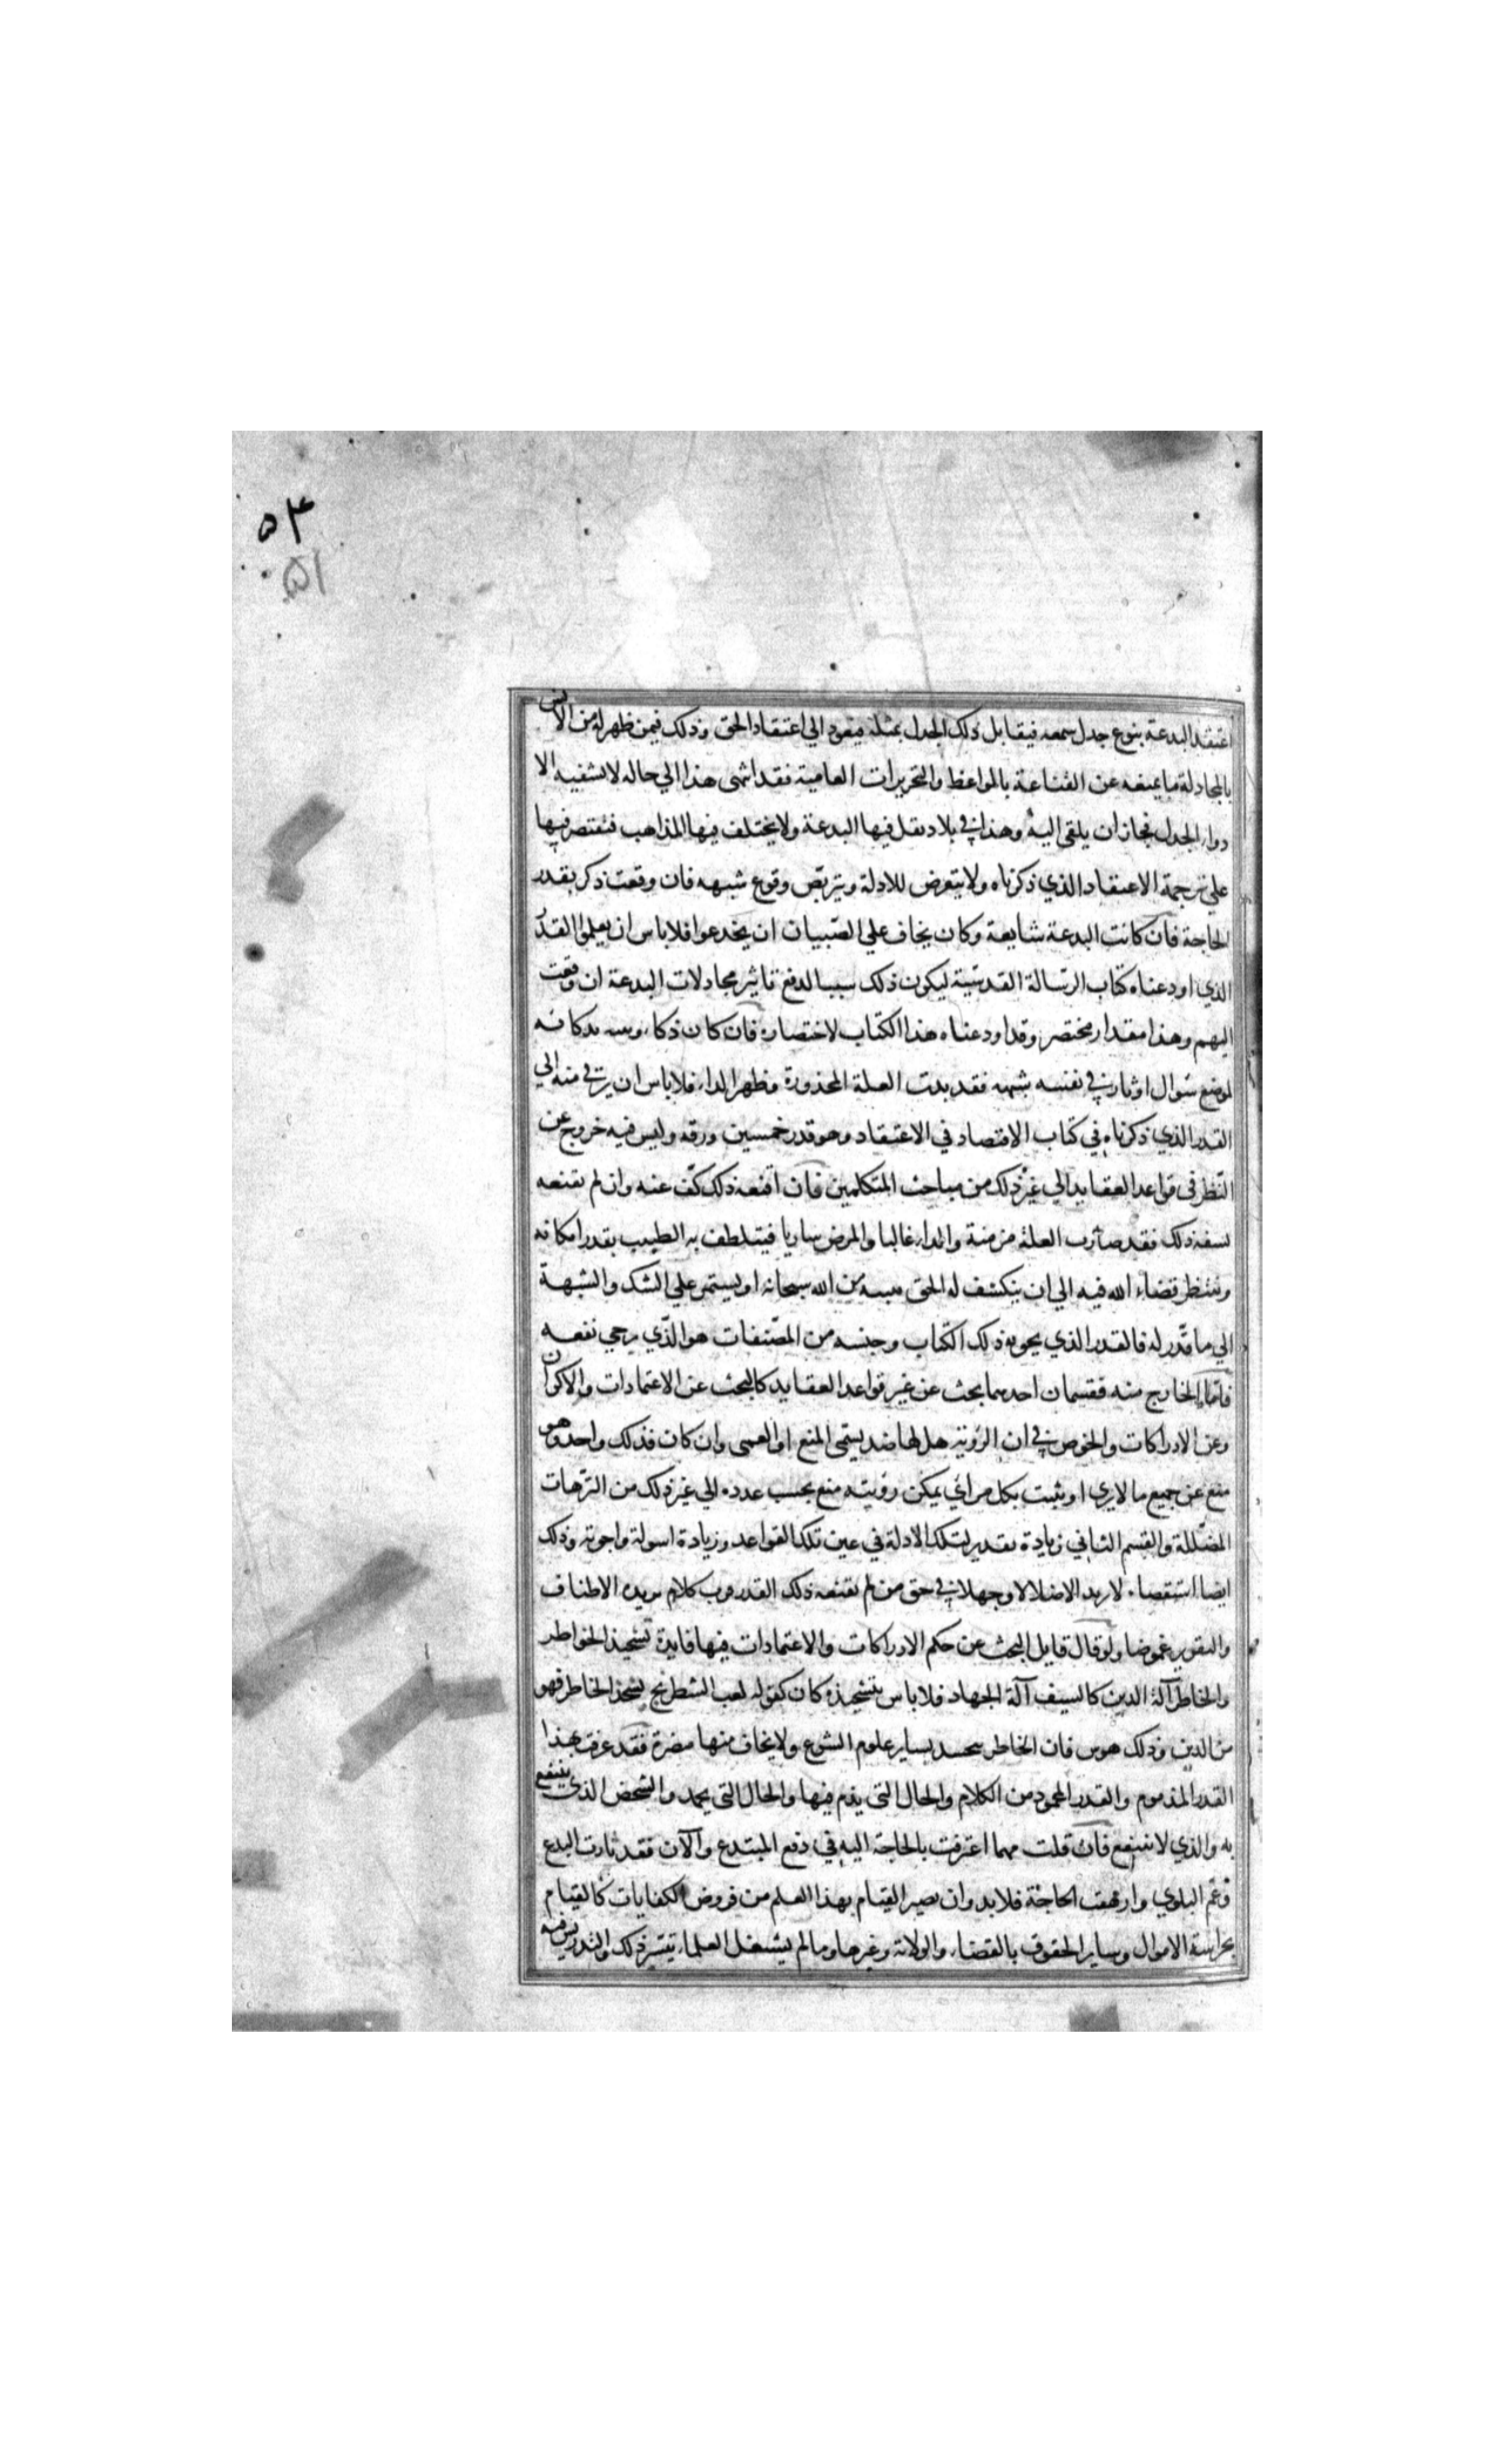 ۵۴
۵۱
اعتقد البدعة بنوع جدل سمعه فيقابل ذلك الجدل بمثله فيعود الي اعتقاد الحق وذلك فيمن ظهر له من الانس
بالمجادلة ما يمنعه عن القناعة بالمواعظ والتحريرات العامية فقد انتهى هذا الي حاله لا تشفيه الا
دواء الجدل فجاز ان يلقى اليه وهذا في بلاد تقل فيها البدعة ولا يختلف فيها المذاهب فيقتصر فيها
علي ترجمة الاعتقاد الذي ذكرناه ولا يتعرض للادلة ويتربص وقوع شبهه فان وقعت ذكر بقدر
الحاجة فان كانت البدعة شايعة وكان يخاف علي الصبيان ان يخدعوا فلا باس ان يعلموا القدر
الذي اودعناه كتاب الرسالة القدسية ليكون ذلك سببا لدفع تاثير مجادلات البدعة ان وقعت
اليهم وهذا مقدار مختصر وقد اودعناه هذا الكتاب لاختصاره فان كان ذكاء
لموضع سوال او ثار في نفسه شبهه فقد بدت العلة المحذورة فظهر الداء فلا باس ان يرقي منه الي
القدر الذي ذكرناه في كتاب الاقتصاد في الاعتقاد وهو قدر خمسين ورقه وليس فيه خروج عن
النظر في قواعد العقايد الي غير ذلك من مباحث المتكلمين فان اقنعه ذلك كف عنه وان لم تقنعه
ذلك فقد صارت العلة مزمنة والداء غالبا والمرض ساريا فيتلطف به الطبيب بقدر امكانه
وينتظر قضاء الله فيه الي ان ينكشف له الحق من الله سبحانه او يستمر علي الشك والشبهة
الي ما قدر له فالقدر الذي يحويه ذلك الكتاب وجنسه من المصنفات هو الذي يرجي نفعه
فاما الخارج منه فقسمان احدهما بحث عن غير قواعد العقايد كالبحث عن الاعتمادات والاكوان
وعن الادراكات والخوض في ان الرؤية هل لها ضد يسمى المنع او العمى وان كان فذلك واحد وهو
منع عن جميع ما لا يري او يثبت بكل مراي يمكن رؤيته منع بحسب عدده الي غير ذلك من الترهات
المضللة والقسم الثاني زيادة تقدير لتلك الادلة في عين تلك القواعد وزيادة اسولة واجوبة وذلك
ايضا استقصاء لا يزيد الا ضلالا وجهلا في حق من لم تقنعه ذلك القدر فرب كلام يزيده الاطناب
والتقرير غموضا ولو قال قايل البحث عن حكم الادراكات والاعتمادات فيها فايدة تشحيذ الخواطر
والخاطر آلة الدين كالسيف آلة الجهاد فلا باس بتشحيذه كان كقوله لعب الشطرنج يشحذ الخاطر فهو
من الدين وذلك هوس فان الخاطر بساير علوم الشرع ولا يخاف منها مضرة فقد عرفت بهذا
القدر المذموم والقدر المحمود من الكلام والحال التي يذم فيها والحال التي يحمد والشخص الذي ينتفع
به والذي لا ينتفع فان قلت مهما اعترفت بالحاجة اليه في دفع المبتدع والآن فقد ثارت البدع
وعم البلوي وارهقت الحاجة فلا بد وان يصير القيام بهذا العلم من فروض الكفايات كالقيام
بحراسة الاموال وساير الحقوق بالقضاء والولاية وغيرها وما لم يشتغل العلماء بنشر ذلك والتدريس فيه